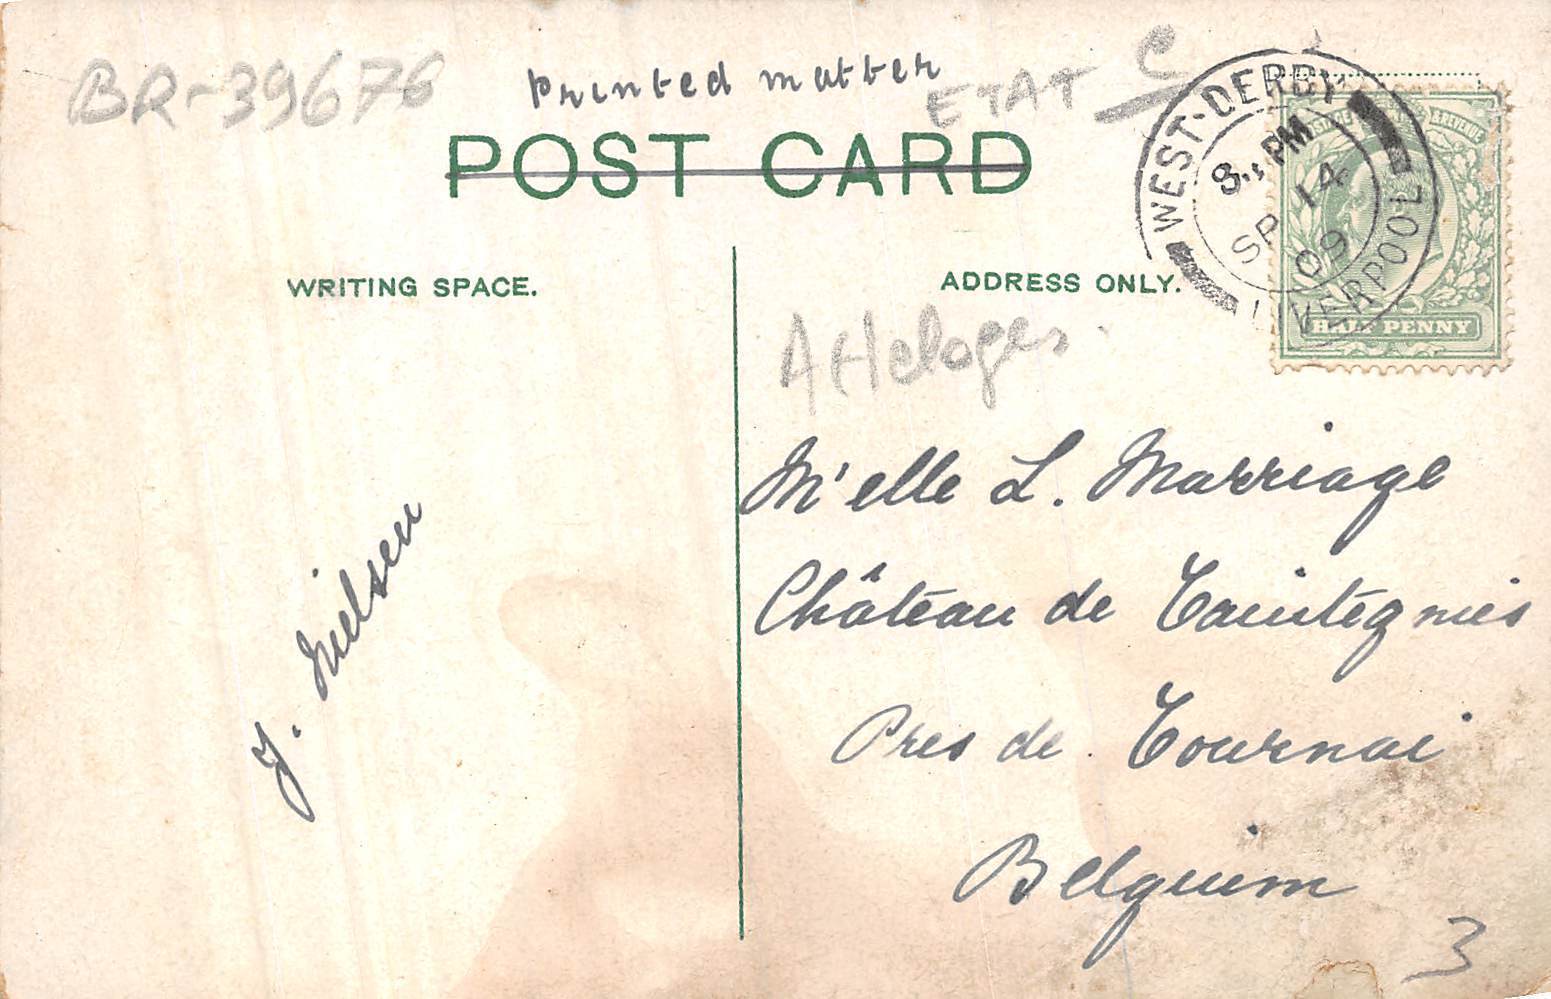 BR-39678
Printed matter
ETAT C
POST CARD
WEST·DERBY
8 PM
SP 14
09
LIVERPOOL
& REVENUE
HALF PENNY
WRITING SPACE.
ADDRESS ONLY.
J. Nielsen
M'elle L. Marriage
Château de Taintegnies
Pres de Tournai
Belguim
3